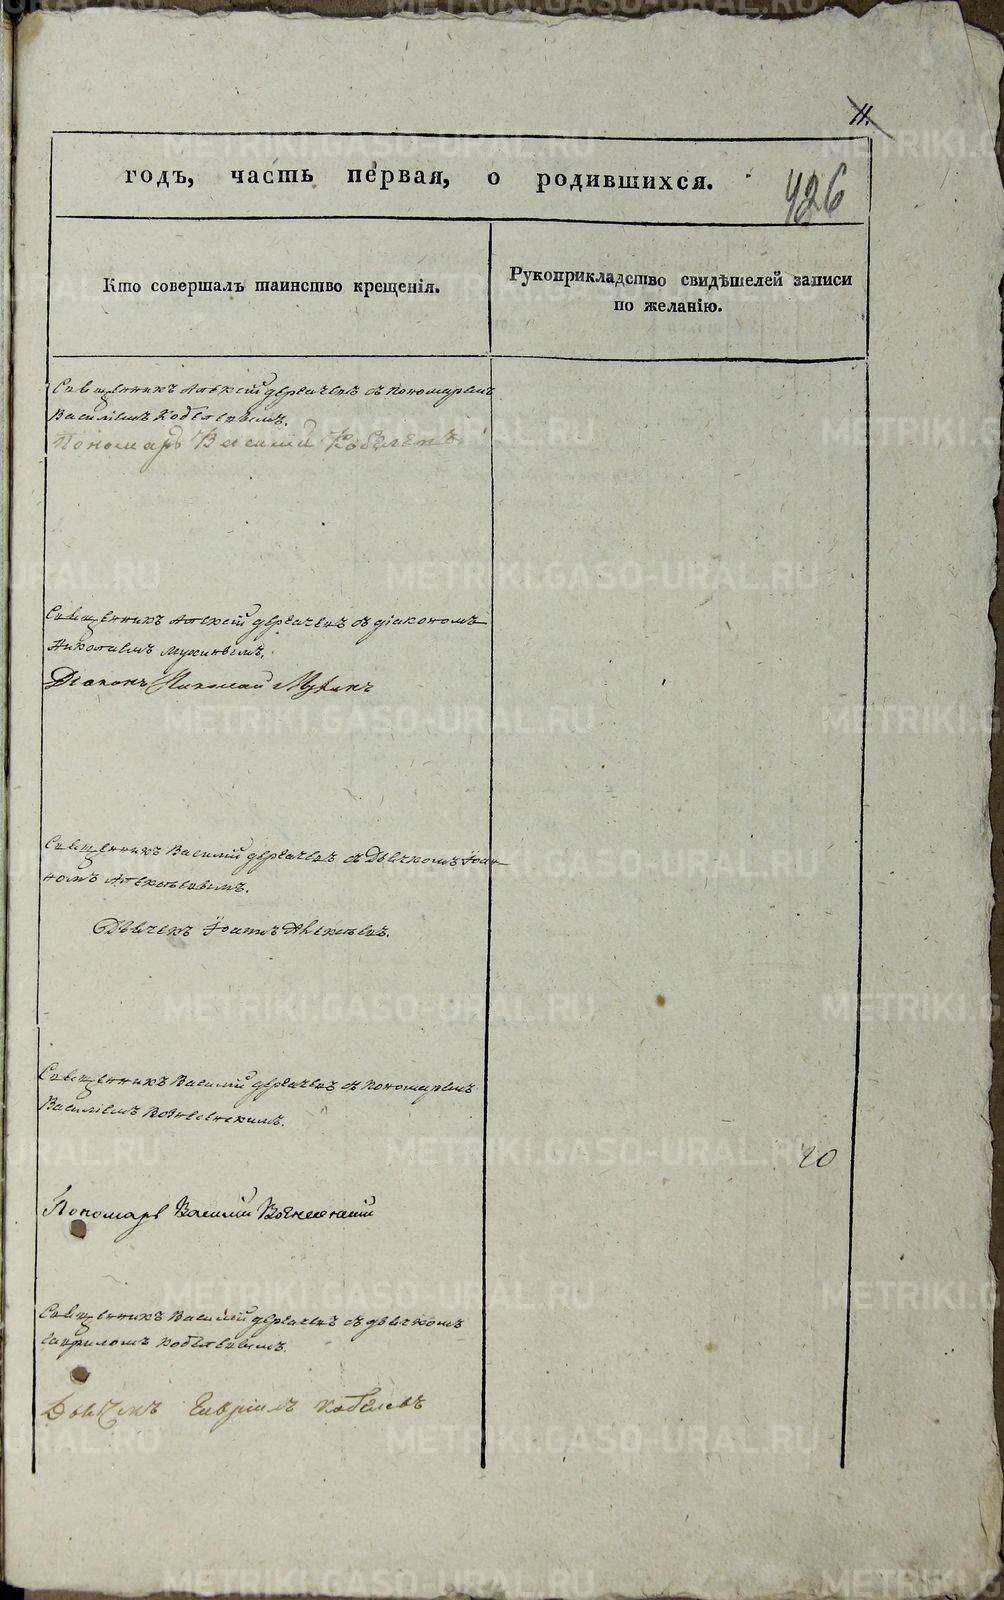 11.
годъ, часть первая, о родившихся.
426
Кто совершалъ таинство крещенія.
Рукоприкладство свидѣтелей записи
по желанію.
Священникъ Алексій Дерначевъ съ пономаремъ
Василіемъ Кобелевымъ.
Пономарь Василій Кобелевъ
Священникъ Алексій Дерначевъ съ діакономъ
Николаемъ Мухинымъ.
Діаконъ Николай Мухинъ
Священникъ Василій Дерначевъ съ Дьячкомъ Іоан-
номъ Алексѣевымъ.
Дьячекъ Іоаннъ Алексѣевъ.
Священникъ Василій Дерначевъ съ пономаремъ
Василіемъ Вознесенскимъ.
20
Пономарь Василій Вознесенскій
Священникъ Василій Дерначевъ съ дьячкомъ
Гавриломъ Кобелевымъ.
Дьячекъ Гавріилъ Кобелевъ
METRIKI.GASO-URAL.RU